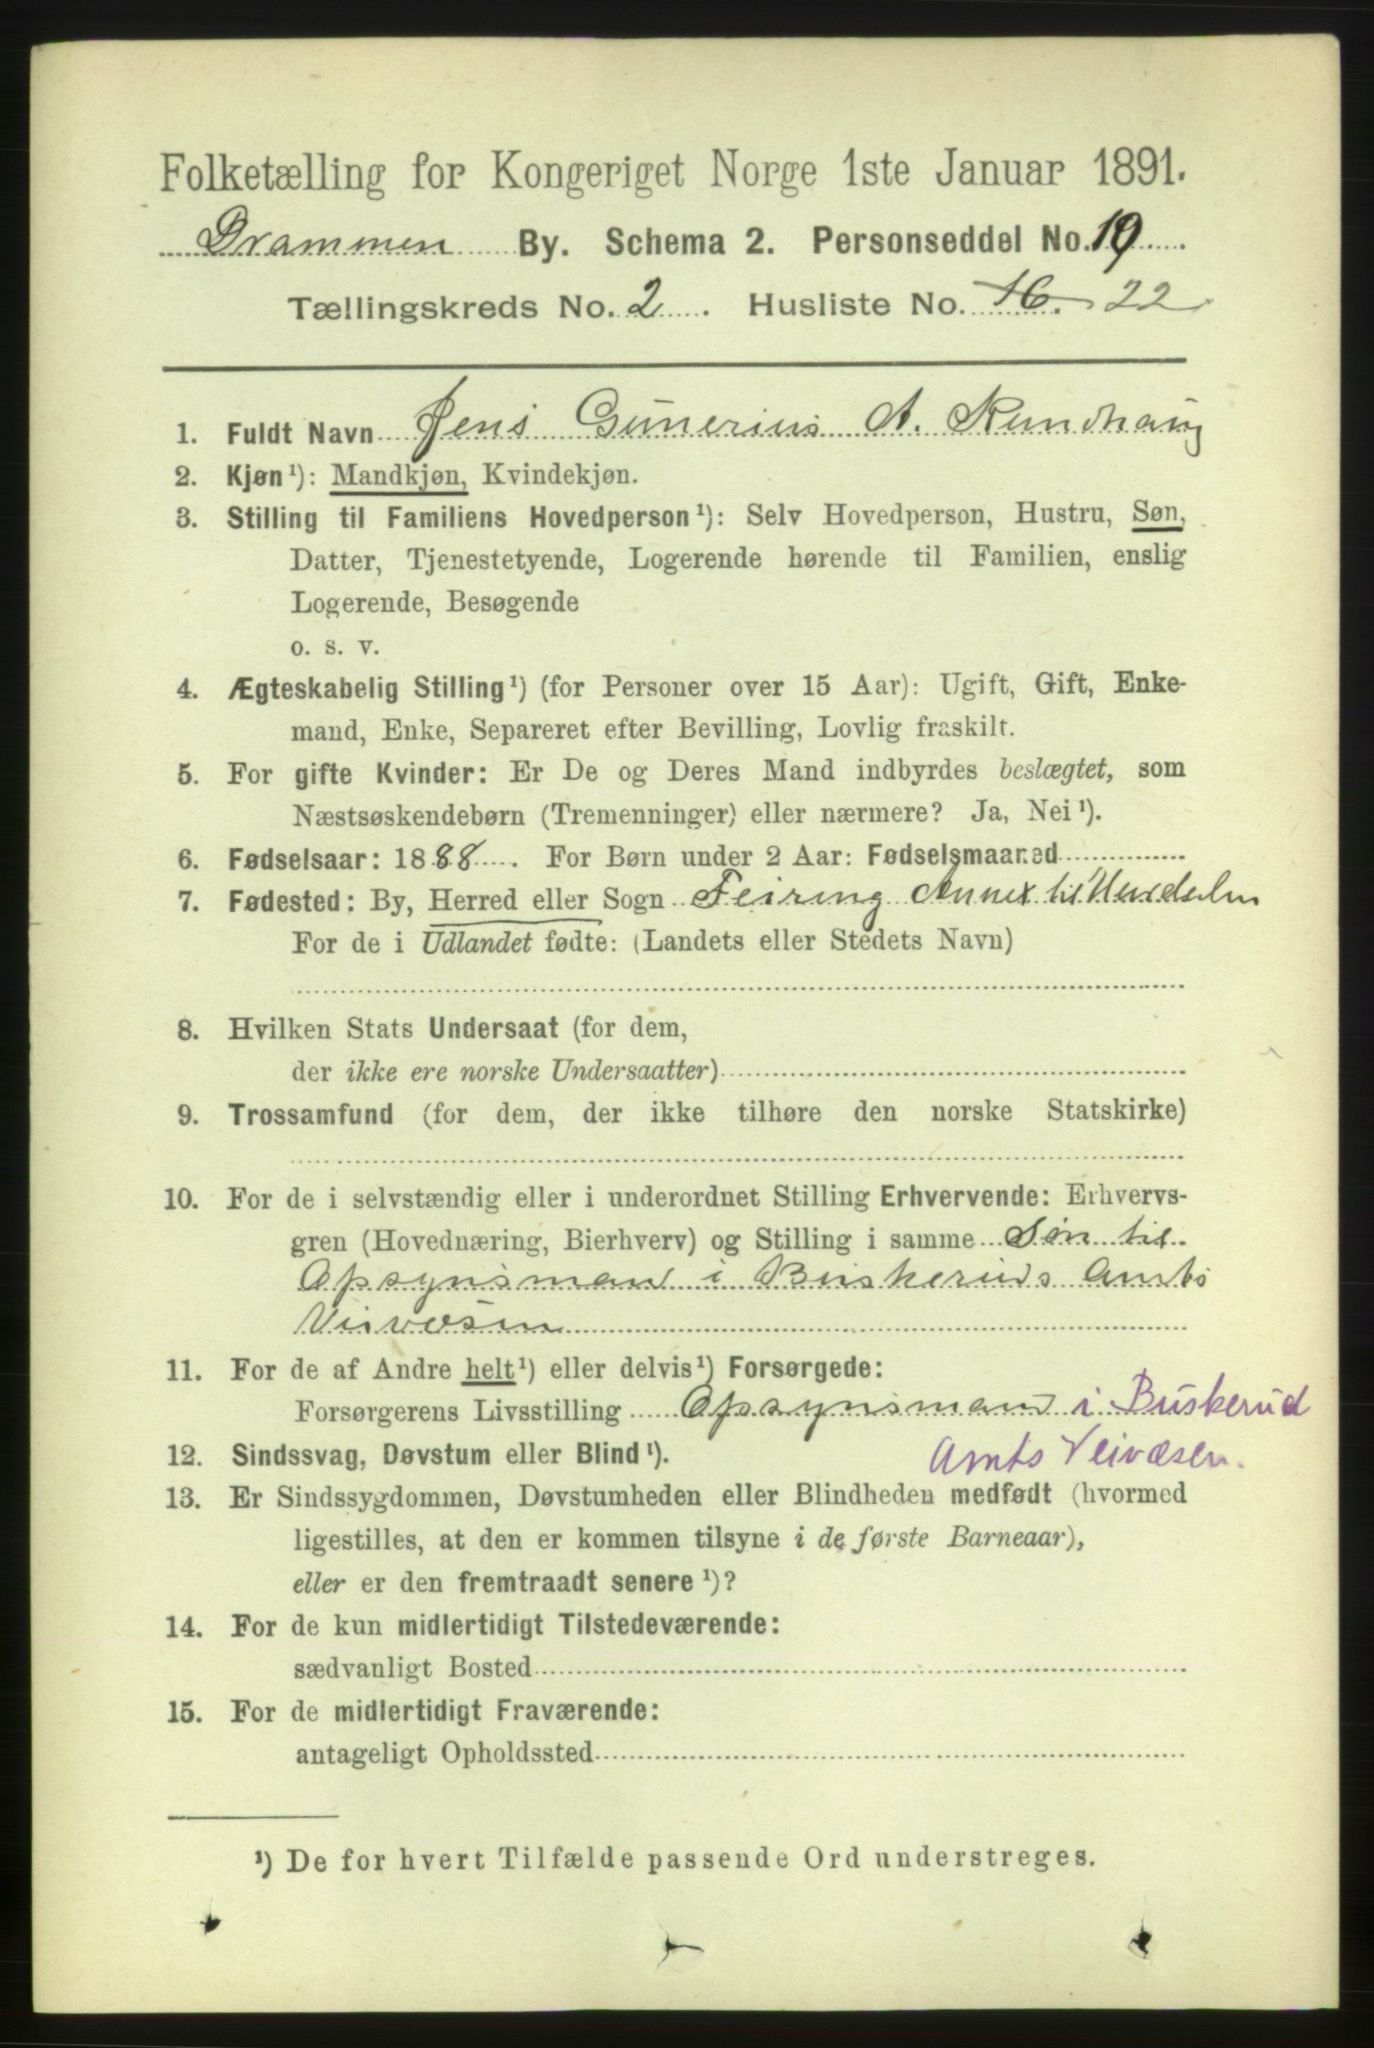 Folketælling for Kongeriget Norge 1ste Januar 1891.
Drammen By. Schema 2. Personseddel No. 19
Tællingskreds No. 2. Husliste No. 16. 22
1. Fuldt Navn Jens Gunerius A. Rundhaug
2. Kjøn¹): Mandkjøn, Kvindekjøn.
3. Stilling til Familiens Hovedperson¹): Selv Hovedperson, Hustru, Søn,
Datter, Tjenestetyende, Logerende hørende til Familien, enslig
Logerende, Besøgende
o. s. v.
4. Ægteskabelig Stilling¹) (for Personer over 15 Aar): Ugift, Gift, Enke-
mand, Enke, Separeret efter Bevilling, Lovlig fraskilt.
5. For gifte Kvinder: Er De og Deres Mand indbyrdes beslægtet, som
Næstsøskendebørn (Tremenninger) eller nærmere? Ja, Nei¹).
6. Fødselsaar: 1888. For Børn under 2 Aar: Fødselsmaaned
7. Fødested: By, Herred eller Sogn Feiring Annex til Hurdalen
For de i Udlandet fødte: (Landets eller Stedets Navn)
8. Hvilken Stats Undersaat (for dem,
der ikke ere norske Undersaatter)
9. Trossamfund (for dem, der ikke tilhøre den norske Statskirke)
10. For de i selvstændig eller i underordnet Stilling Erhvervende: Erhvervs-
gren (Hovednæring, Bierhverv) og Stilling i samme Søn til
Opsynsmand i Buskeruds Amts
Veivæsen
11. For de af Andre helt¹) eller delvis¹) Forsørgede:
Forsørgerens Livsstilling Opsynsmand i Buskerud
Amts Veivæsen.
12. Sindssvag, Døvstum eller Blind¹).
13. Er Sindssygdommen, Døvstumheden eller Blindheden medfødt (hvormed
ligestilles, at den er kommen tilsyne i de første Barneaar),
eller er den fremtraadt senere¹)?
14. For de kun midlertidigt Tilstedeværende:
sædvanligt Bosted
15. For de midlertidigt Fraværende:
antageligt Opholdssted
¹) De for hvert Tilfælde passende Ord understreges.